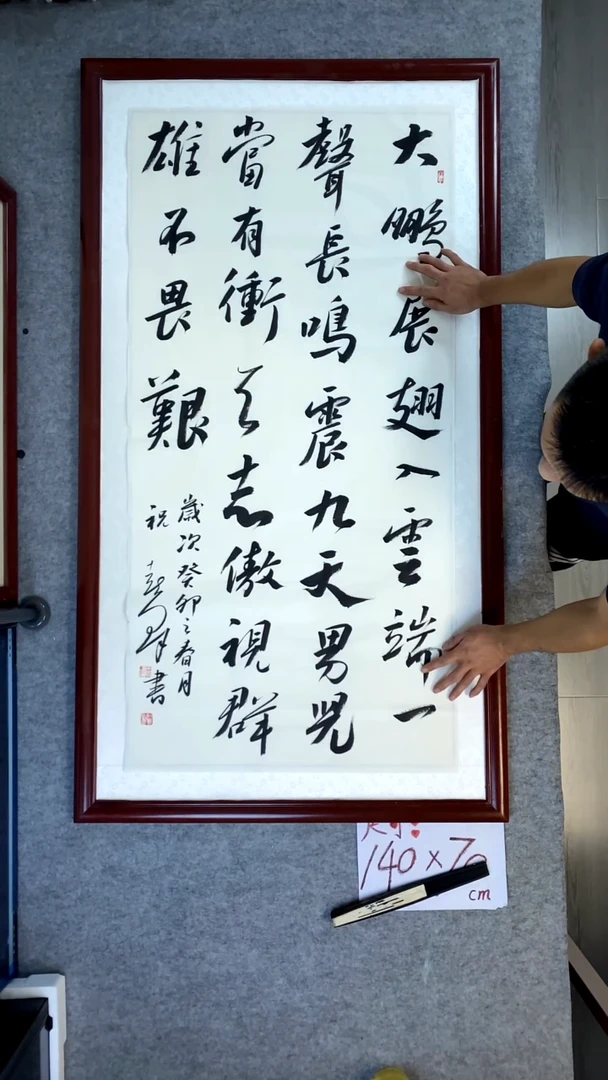 大鵬展翅入雲端一
聲長鳴震九天男児
當有衝天志傲視群
雄不畏艱
歲次癸卯之春月
祝
書
140×70
cm